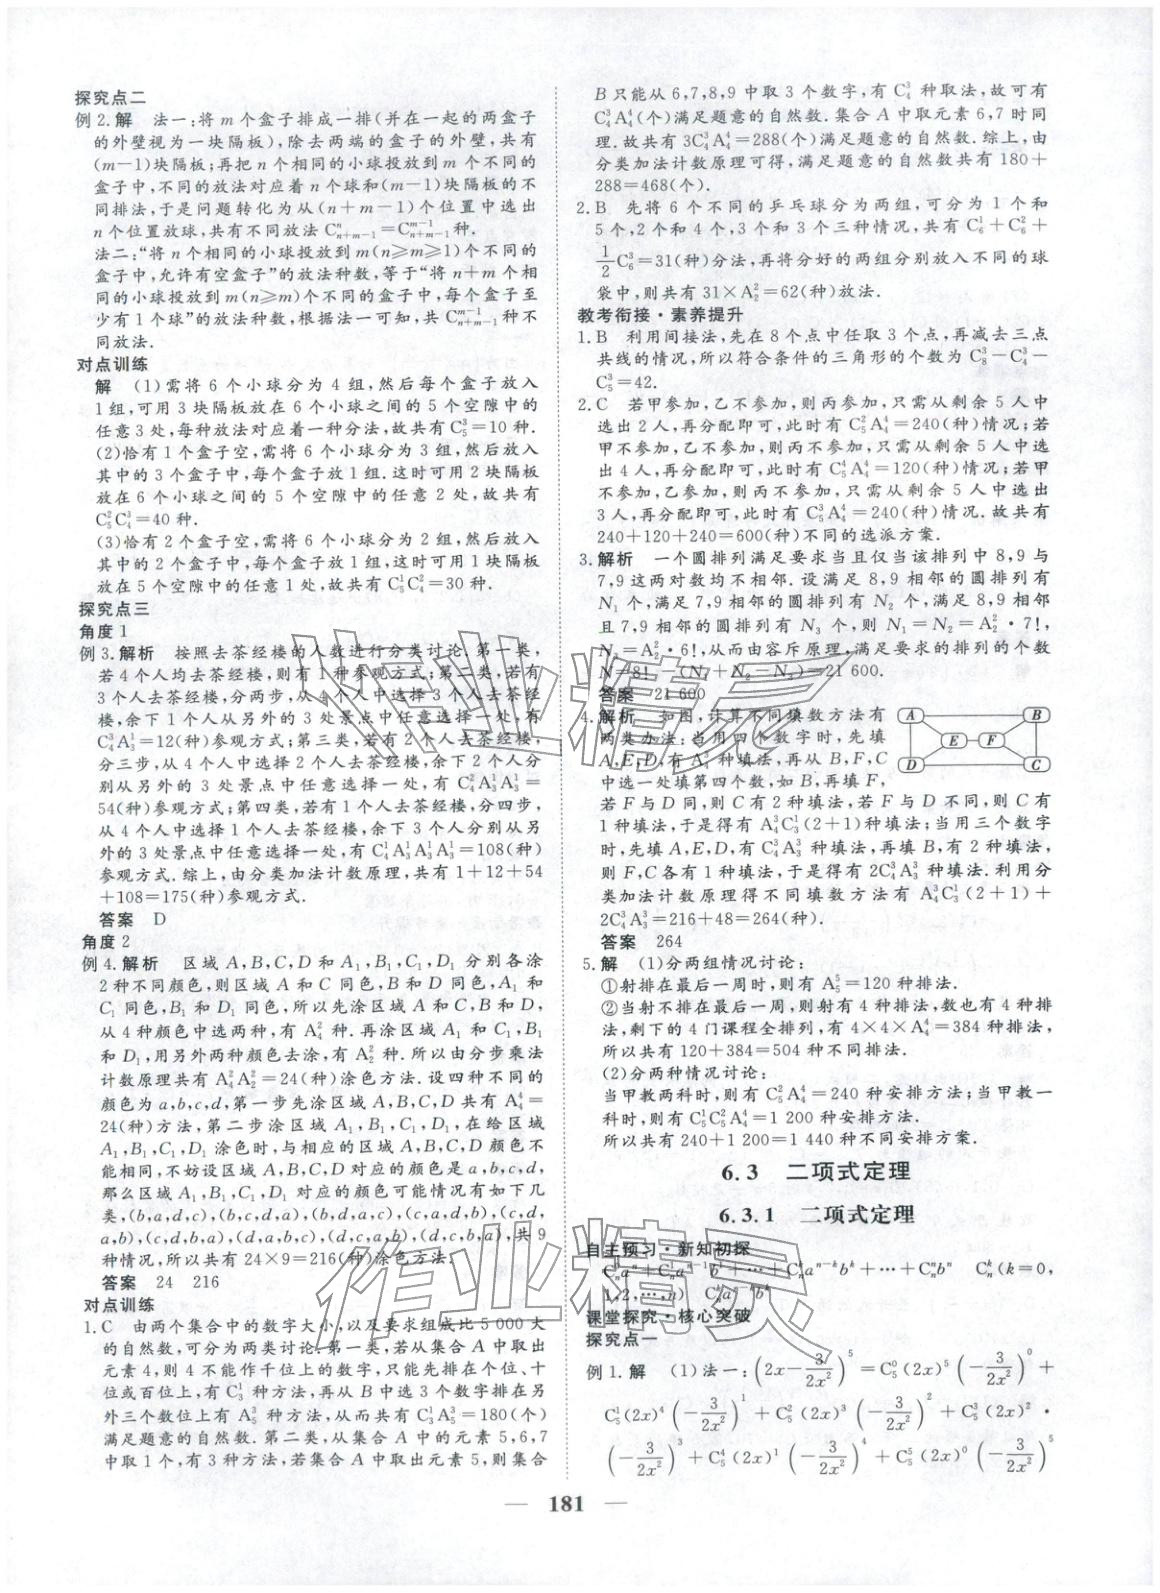 探究点二
例2.解 法一:将m个盒子排成一排(并在一起的两盒子
的外壁视为一块隔板),除去两端的盒子的外壁,共有
(m-1)块隔板;再把n个相同的小球投放到m个不同的
盒子中,不同的放法对应着n个球和(m-1)块隔板的不
同排法,于是问题转化为从(n+m-1)个位置中选出
n个位置放球,共有不同放法C_{n+m-1}^{n}=C_{n+m-1}^{m-1}种.
法二:“将n个相同的小球投放到m(n≥m≥1)个不同的
盒子中,允许有空盒子”的放法种数,等于“将n+m个相
同的小球投放到m(n≥m)个不同的盒子中,每个盒子至
少有1个球”的放法种数,根据法一可知,共C_{n+m-1}^{m-1}种不
同放法.
对点训练
解 (1)需将6个小球分为4组,然后每个盒子放入
1组,可用3块隔板放在6个小球之间的5个空隙中的
任意3处,每种放法对应着一种分法,故共有C_5^3=10种.
(2)恰有1个盒子空,需将6个小球分为3组,然后放入
其中的3个盒子中,每个盒子放1组.这时可用2块隔板
放在6个小球之间的5个空隙中的任意2处,故共有
C_5^2C_4^3=40种.
(3)恰有2个盒子空,需将6个小球分为2组,然后放入
其中的2个盒子中,每个盒子放1组,这时可用1块隔板
放在5个空隙中的任意1处,故共有C_5^1C_4^2=30种.
探究点三
角度1
例3.解析 按照去茶经楼的人数进行分类讨论.第一类,
若4个人均去茶经楼,则有1种参观方式;第二类,若有
3个人去茶经楼,分两步,从4个人中选择3个人去茶经
楼,余下1个人从另外的3处景点中任意选择一处,有
C_4^3A_3^1=12(种)参观方式;第三类,若有2个人去茶经楼,
分三步,从4个人中选择2个人去茶经楼,余下2个人分
别从另外的3处景点中任意选择一处,有C_4^2A_3^1A_3^1=
54(种)参观方式;第四类,若有1个人去茶经楼,分四步,
从4个人中选择1个人去茶经楼,余下3个人分别从另
外的3处景点中任意选择一处,有C_4^1A_3^1A_3^1A_3^1=108(种)
参观方式.综上,由分类加法计数原理,共有1+12+54
+108=175(种)参观方式.
答案 D
角度2
例4.解析 区域A,B,C,D和A_1,B_1,C_1,D_1分别各涂
2种不同颜色,则区域A和C同色,B和D同色,A_1和
C_1同色,B_1和D_1同色.所以先涂区域A和C,B和D,
从4种颜色中选两种,有A_4^2种.再涂区域A_1和C_1,B_1
和D_1,用另外两种颜色去涂,有A_2^2种.所以由分步乘法
计数原理共有A_4^2A_2^2=24(种)涂色方法.设四种不同的
颜色为a,b,c,d,第一步先涂区域A,B,C,D共有A_4^4=
24(种)方法,第二步涂区域A_1,B_1,C_1,D_1,在给区域
A_1,B_1,C_1,D_1涂色时,与相应的区域A,B,C,D颜色不
能相同,不妨设区域A,B,C,D对应的颜色是a,b,c,d,
那么区域A_1,B_1,C_1,D_1对应的颜色可能情况有如下几
类,(b,a,d,c),(b,c,d,a),(b,d,a,c),(c,a,d,b),(c,d,
a,b),(c,d,b,a),(d,a,b,c),(d,c,a,b),(d,c,b,a),共9
种情况,所以共有24×9=216(种)涂色方法.
答案 24 216
对点训练
1.C 由两个集合中的数字大小,以及要求组成比5 000大
的自然数,可分为两类讨论.第一类,若集合A中取出
元素4,则4不能作千位上的数字,只能先排在个位、十
位或百位上,有C_3^1种方法,再从B中选3个数字排在另
外三个数位上有A_5^3种方法,从而共有C_3^1A_5^3=180(个)
满足题意的自然数.第二类,从集合A中的元素5,6,7
中取1个,有3种方法,若集合A中取出元素5,则集合
B只能从6,7,8,9中取3个数字,有C_4^3种取法,故可有
C_4^3A_4^4(个)满足题意的自然数.集合A中取元素6,7时同
理.故共有3C_4^3A_4^4=288(个)满足题意的自然数.综上,由
分类加法计数原理可得,满足题意的自然数共有180+
288=468(个).
2.B 先将6个不同的乒乓球分为两组,可分为1个和
5个,2个和4个,3个和3个三种情况,共有C_6^1+C_6^2+
\frac{1}{2}C_6^3=31(种)分法,再将分好的两组分别放入不同的球
袋中,则共有31×A_2^2=62(种)放法.
教考衔接·素养提升
1.B 利用间接法,先在8个点中任取3个点,再减去三点
共线的情况,所以符合条件的三角形的个数为C_8^3-C_4^3-
C_5^3=42.
2.C 若甲参加,乙不参加,则丙参加,只需从剩余5人中
选出2人,再分配即可,此时共有C_5^2A_4^4=240(种)情况;若
甲不参加,乙参加,则丙不参加,只需从剩余5人中选
出4人,再分配即可,此时共有C_5^4A_4^4=120(种)情况;若甲
不参加,乙不参加,则丙不参加,只需从剩余5人中选出
3人,再分配即可,此时共有C_5^3A_4^4=240(种)情况.故共有
240+120+240=600(种)不同的选派方案.
3.解析 一个圆排列满足要求当且仅当该排列中8,9与
7,9这两对数均不相邻.设满足8,9相邻的圆排列有
N_1个,满足7,9相邻的圆排列有N_2个,满足8,9相邻
且7,9相邻的圆排列有N_3个,则N_1=N_2=A_2^2·7!,
N_3=A_2^2·6!,从而由容斥原理,满足要求的排列的个数
N=8!-(N_1+N_2-N_3)=21 600.
答案 21 600
4.解析 如图,计算不同填数方法有
两类办法:当用四个数字时,先填
A,E,D,有A_4^3种填法,再从B,F,C
中选一处填第四个数,如B,再填F,
A B
E F
D C
若F与D同,则C有2种填法,若F与D不同,则C有
1种填法,于是得有A_4^3C_3^1(2+1)种填法;当用三个数字
时,先填A,E,D,有C_4^3A_3^3种填法,再填B,有2种填法,
则F,C各有1种填法,得有2C_4^3A_3^3种填法.利用分
类加法计数原理得不同填数方法有A_4^3C_3^1(2+1)+
2C_4^3A_3^3=216+48=264(种).
答案 264
5.解 (1)分两组情况讨论:
①射排在最后一周时,则有A_5^5=120种排法.
②当射不排在最后一周,则射有4种排法,数也有4种排
法,剩下的4门课程全排列,有4×4×A_4^4=384种排法,
所以共有120+384=504种不同排法.
(2)分两种情况讨论:
当甲教两科时,则有C_5^2A_4^4=240种安排方法;当甲教一
科时,则有C_5^1C_5^2A_4^4=1 200种安排方法.
所以共有240+1 200=1 440种不同安排方案.
6.3 二项式定理
6.3.1 二项式定理
自主预习·新知初探
C_n^0a^n+C_n^1a^{n-1}b^1+…+C_n^ka^{n-k}b^k+…+C_n^nb^n C_n^k(k=0,
1,2,…,n) C_n^ka^{n-k}b^k
课堂探究·核心突破
探究点一
例1.解 (1)法一:(2x-\frac{3}{2x^2})^5=C_5^0(2x)^5(-\frac{3}{2x^2})^0+
C_5^1(2x)^4(-\frac{3}{2x^2})^1+C_5^2(2x)^3(-\frac{3}{2x^2})^2+C_5^3(2x)^2·
(-\frac{3}{2x^2})^3+C_5^4(2x)(-\frac{3}{2x^2})^4+C_5^5(2x)^0(-\frac{3}{2x^2})^5
— 181 —
作业精灵
作业精灵